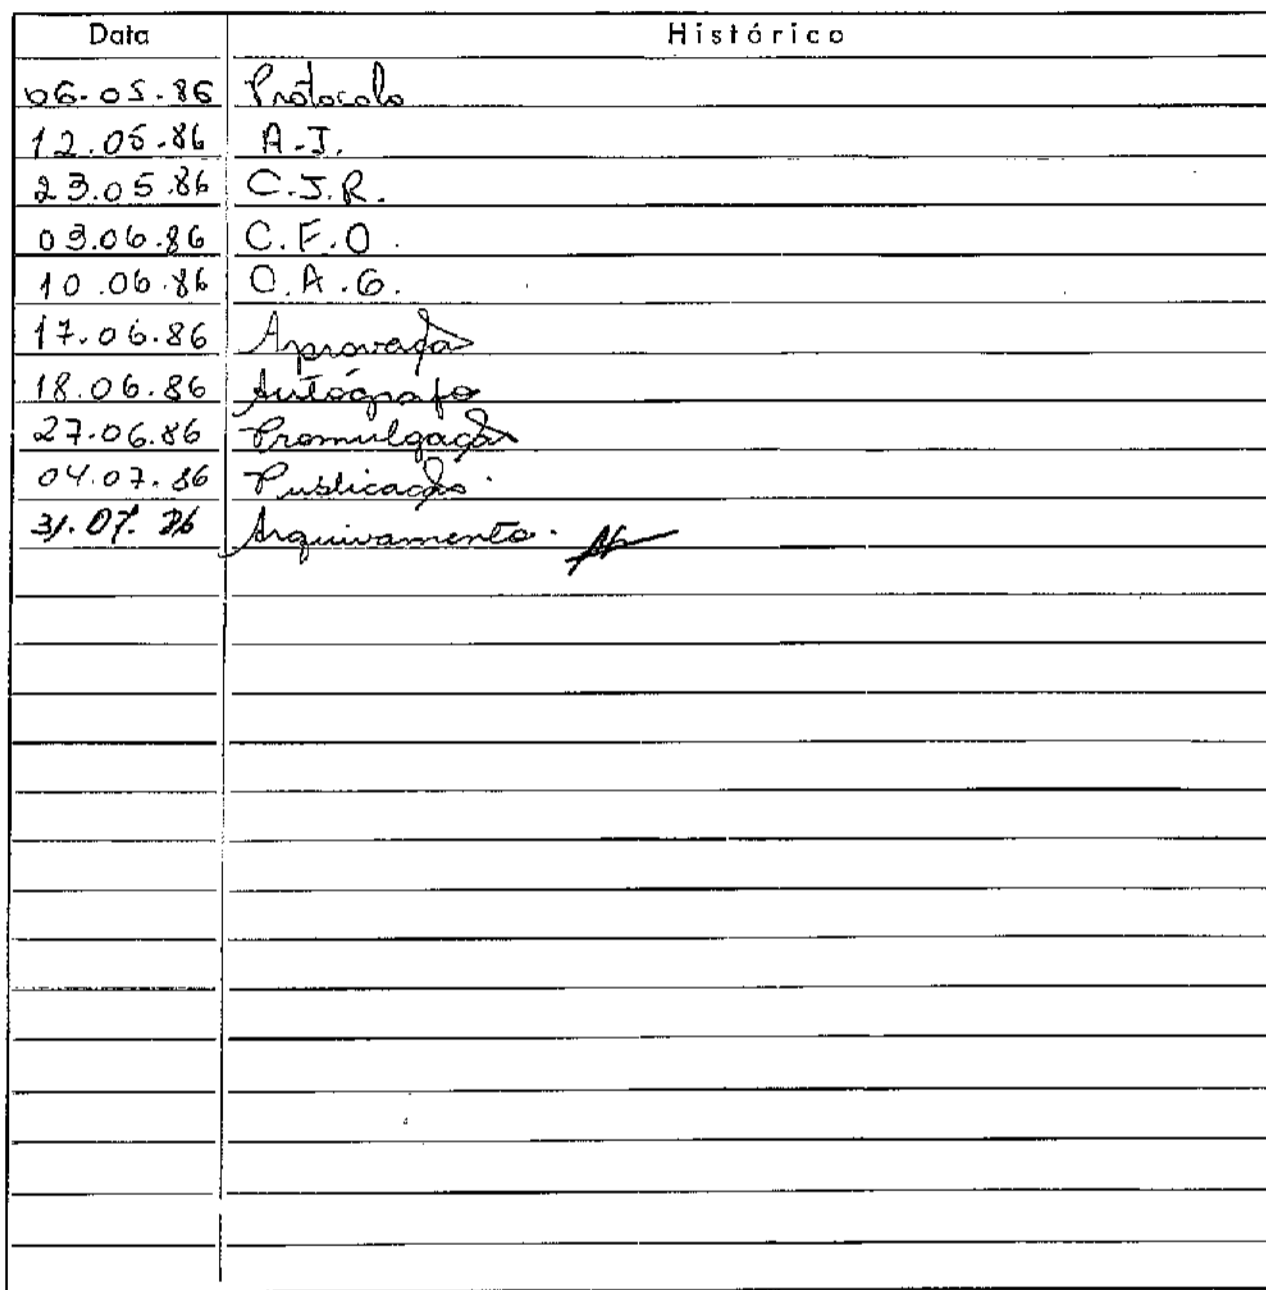 Data Histórico
06.05.86 Protocolo
12.05.86 A.J.
23.05.86 C.J.R.
03.06.86 C.F.O.
10.06.86 C.A.G.
17.06.86 Aprovação
18.06.86 Autógrafo
27.06.86 Promulgação
04.07.86 Publicação.
31.07.86 Arquivamento.